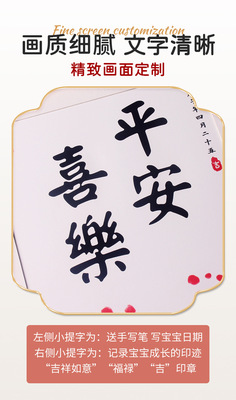 Fine screen customization
画质细腻 文字清晰
精致画面定制
平安
喜樂
年四月二十五
吉
左侧小提字为：送手写笔 写宝宝日期
右侧小提字为：记录宝宝成长的印迹
“吉祥如意” “福禄” “吉”印章